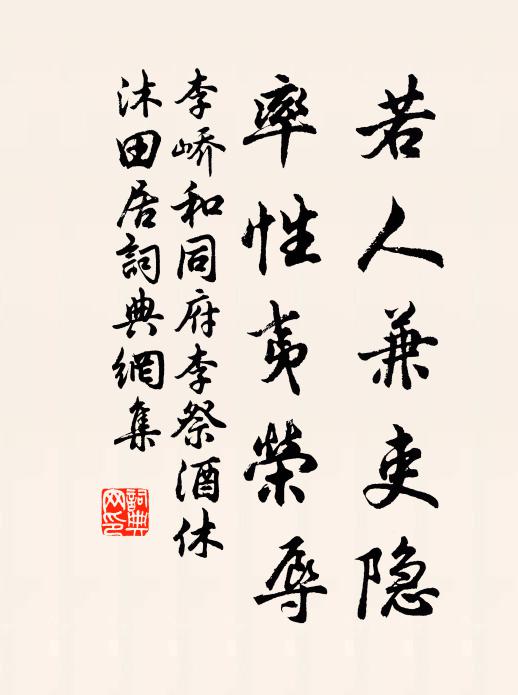 若人兼吏隐
率性夷榮辱
李嶠和同府李祭酒休
沐田居詞典網集
詞典
网印